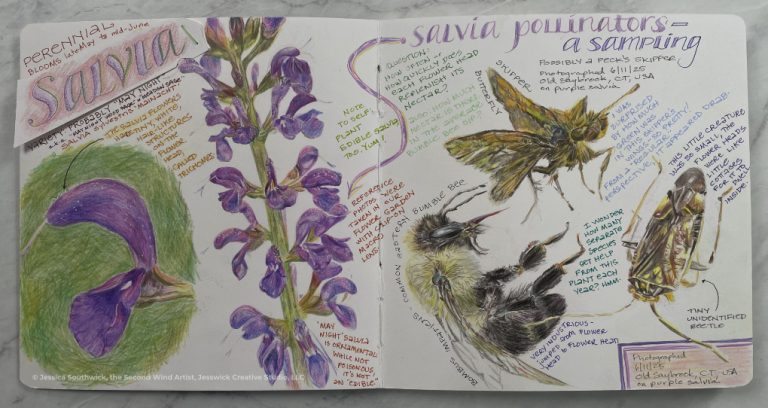 PERENNIAL
BLOOMS LATE MAY to mid-JUNE
Salvia
VARIETY PROBABLY "MAY NIGHT"
SALVIA SYLVESTRIS 'MAINACHT'
THE SALVIA FLOWERS
HAD TINY WHITE
HAIR-LIKE
STRUCTURES
ON THE
FLOWER
HEAD,
CALLED
TRICHOMES
NOTE
TO SELF:
PLANT
EDIBLE SALVIA
TOO, YUM!
REFERENCE
PHOTOS WERE
TAKEN IN OUR
FLOWER GARDEN
WITH CLIP-ON
MACRO
LENS.
'MAY
NIGHT' SALVIA
IS ORNAMENTAL
WHILE NOT
POISONOUS,
IT'S NOT
AN 'EDIBLE'.
© Jessica Southwick, the Second Wind Artist, Jesswick Creative Studio, LLC
salvia pollinators-
a sampling
QUESTION:
HOW OFTEN or
HOW QUICKLY DOES
EACH FLOWER HEAD
REPLENISH ITS
NECTAR?
ALSO HOW MUCH
NECTAR IS THERE
IN THE FLOWER
BUMBLE BEE SIP?
SKIPPER
BUTTERFLY
POSSIBLY a PECK'S SKIPPER
Photographed 6/11/25
Old Saybrook, CT, USA
on purple salvia
I WAS
SURPRISED
BY HOW MUCH
GREEN WAS
IN THIS SKIPPER'S
WINGS. PRETTY!
FROM A REGULAR
PERSPECTIVE, IT APPEARED DRAB.
THIS LITTLE CREATURE
WAS SO SMALL, THE
FLOWER HEADS
WERE LIKE
LITTLE
COTTAGES
FOR IT TO
DWELL
INSIDE.
BOMBUS IMPATIENS: COMMON EASTERN BUMBLE BEE
I WONDER
HOW MANY
SEPARATE
SPECIES
GET HELP
FROM THIS
PLANT EACH
YEAR? HMM.
VERY INDUSTRIOUS-
JUMPED FROM FLOWER
HEAD to FLOWER HEAD
TINY
UNIDENTIFIED
BEETLE
Photographed
6/11/25
Old Saybrook, CT, USA
on purple salvia